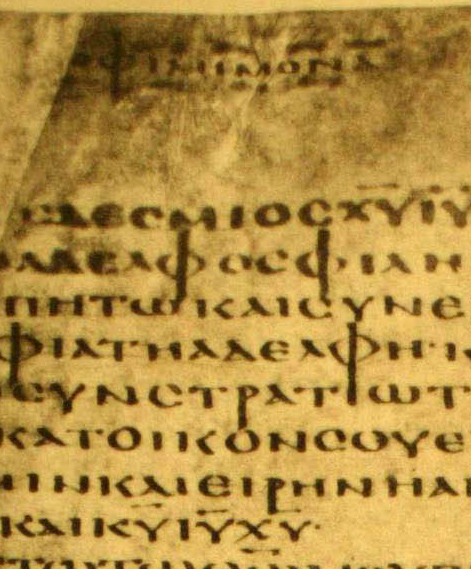 ΦΙΛΗΜΟΝΑ
ϹΔΕϹΜΙΟϹΧ̅Υ̅Ι̅Υ̅
ΑΔΕΛΦΟϹΦΙΛΗ
ΠΗΤΩΚΑΙϹΥΝΕ
ΦΙΑΤΗΑΔΕΛΦΗ·Κ
ϹΥΝϹΤΡΑΤΙΩΤ
ΚΑΤΟΙΚΟΝϹΟΥΕ
ΙΝΚΑΙΕΙΡΗΝΗΑΠ
ΚΑΙΚ̅Υ̅Ι̅Υ̅Χ̅Υ̅·